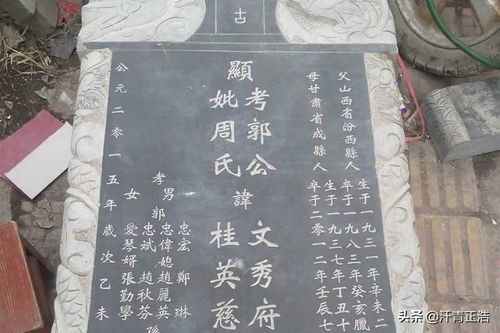 古
父山西省汾西縣人
生于一九三一年辛未二
卒于一九八三年癸亥臘
母甘肅省成縣人
生于一九三七年丁丑十
卒于二〇一二年壬辰七
顯
考郭公
妣周氏
諱
文秀府
桂英慈
孝男郭
忠宏 鄭琳
忠偉媳趙麗英
忠斌 趙秋芬 孫
女 愛琴婿張勤學
公元二零一五年歲次乙未
头条 @汗青正浩